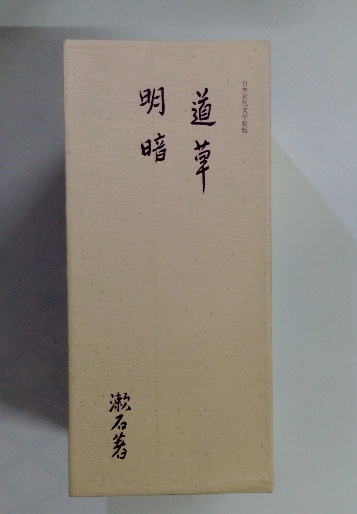 日本近代文学館版
道草
明暗
漱石著